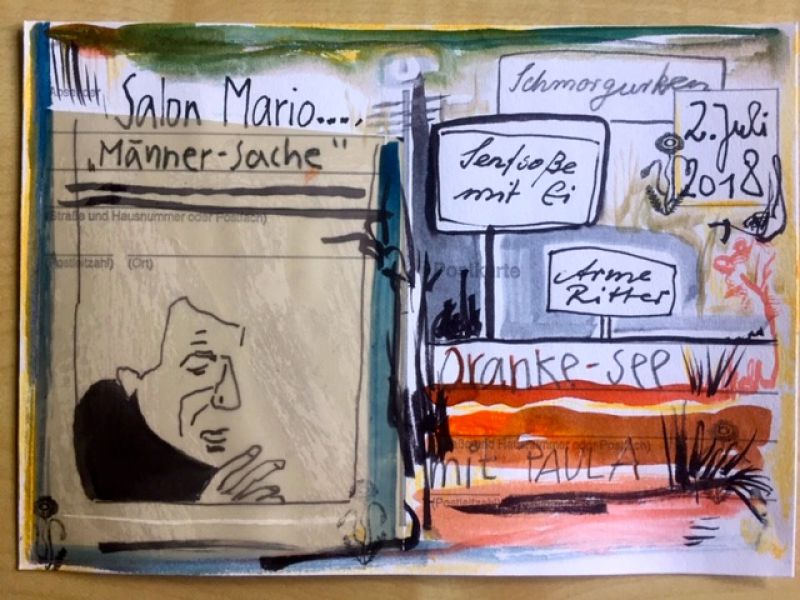 Absender
Salon Mario....,
„Männer-Sache“
Straße und Hausnummer oder Postfach)
Postleitzahl) (Ort)
Schmorgurken
2. Juli
2018
Senfsoße
mit Ei
Postkarte
Arme
Ritter
Oranke-see
und Hausnummer oder Postfach)
mit PAULA
(Postleitzahl)